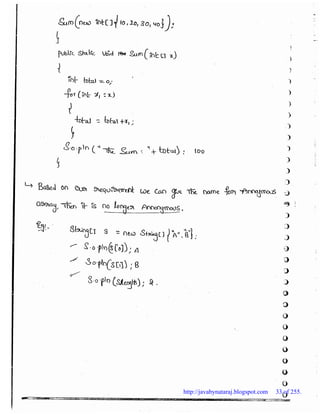 Sum(new int[]{10,20,30,40});
}
public static void Sum(int[] x)
{
int total = 0;
for (int x1 : x)
{
total = total + x1;
}
S.o.pln("The Sum : "+total); 100
}
↳ Based on our requirement we can give the name for Annonymous
array. Then it is no longer Annonymous.
Eg:. String[] s = new String[]{"A","B"};
S.o.pln(s[0]); A
S.o.pln(s[1]); B
S.o.pln(s.length); 2.
http://javabynataraj.blogspot.com 33 of 255.